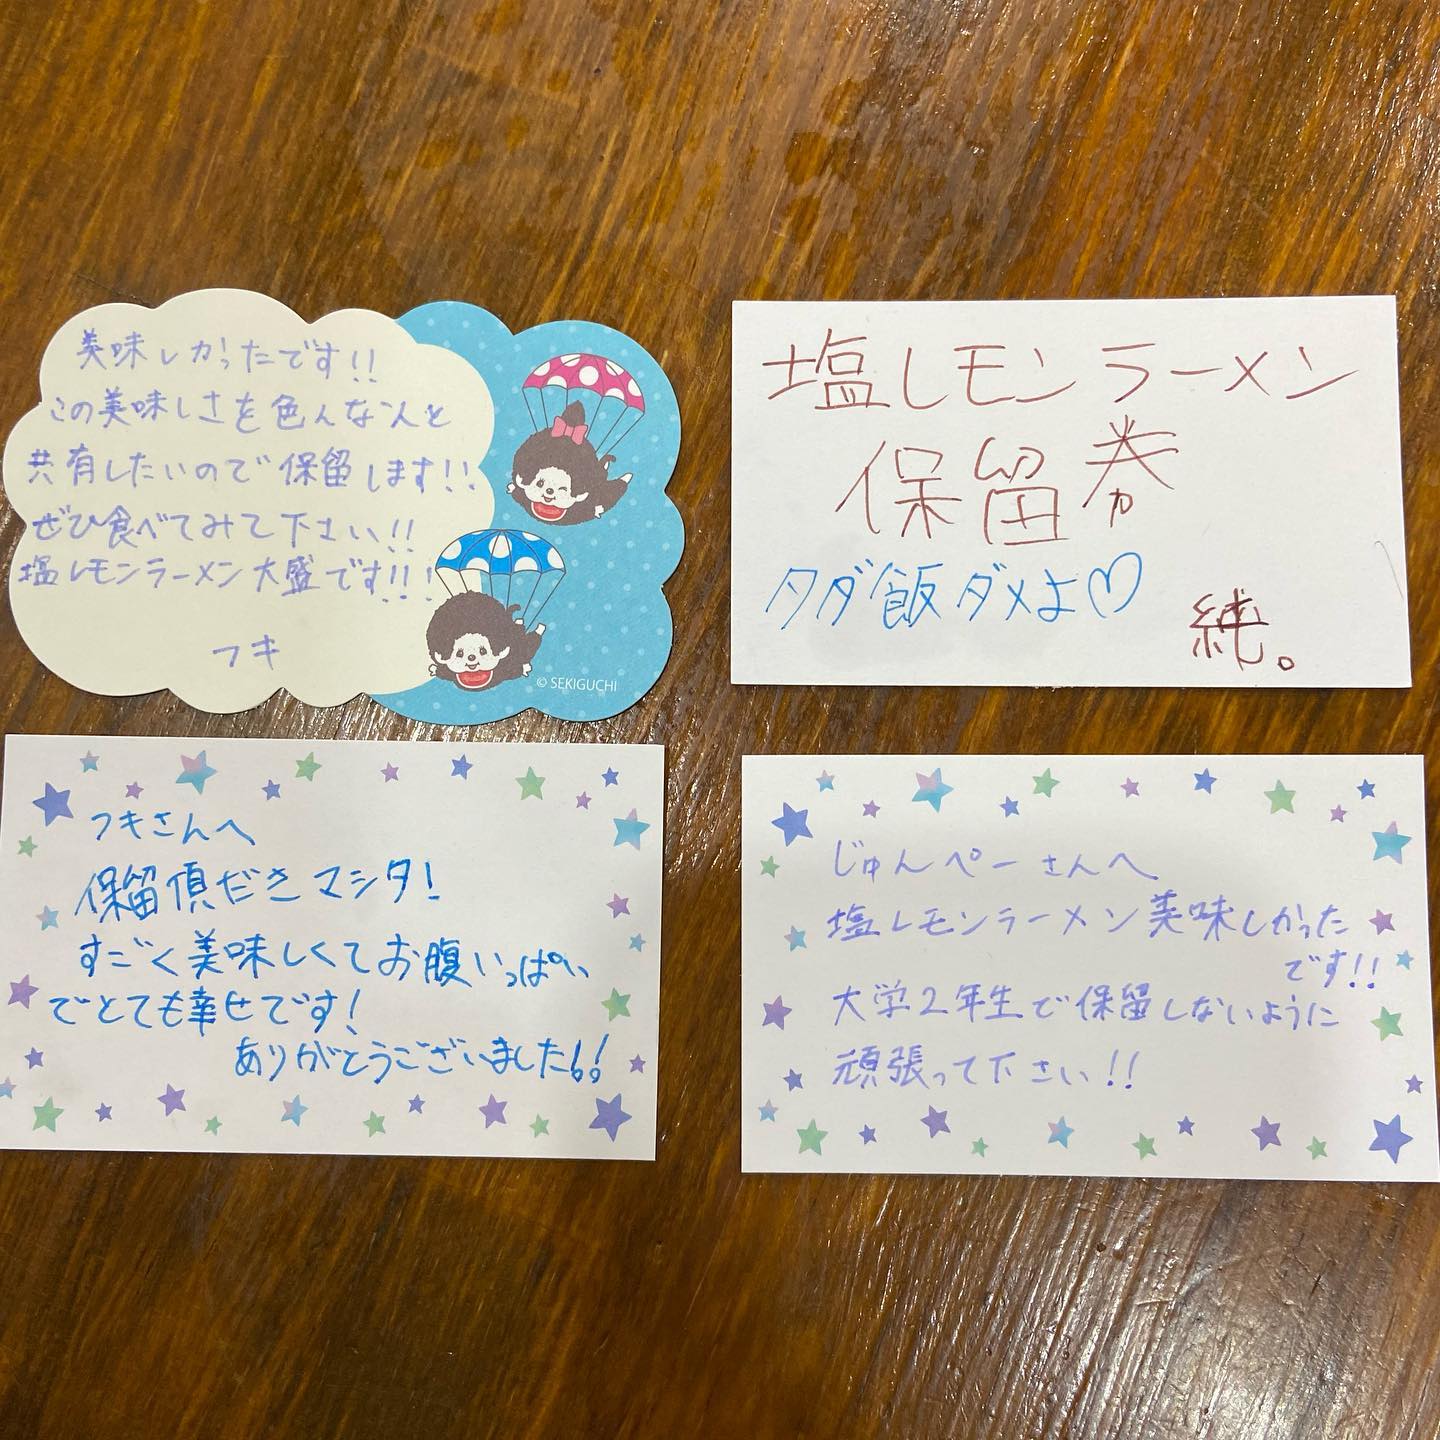 美味しかったです!!
この美味しさを色んな人と
共有したいので保留します!!
ぜひ食べてみて下さい!!
塩レモンラーメン大盛です!!!
フキ
© SEKIGUCHI
塩レモンラーメン
保留券
タダ飯ダメよ♡
純。
フキさんへ
保留頂だきマシタ!
すごく美味しくてお腹いっぱい
でとても幸せです!
ありがとうございました!!
じゅんぺーさんへ
塩レモンラーメン美味しかった
です!!
大学2年生で保留しないように
頑張って下さい!!